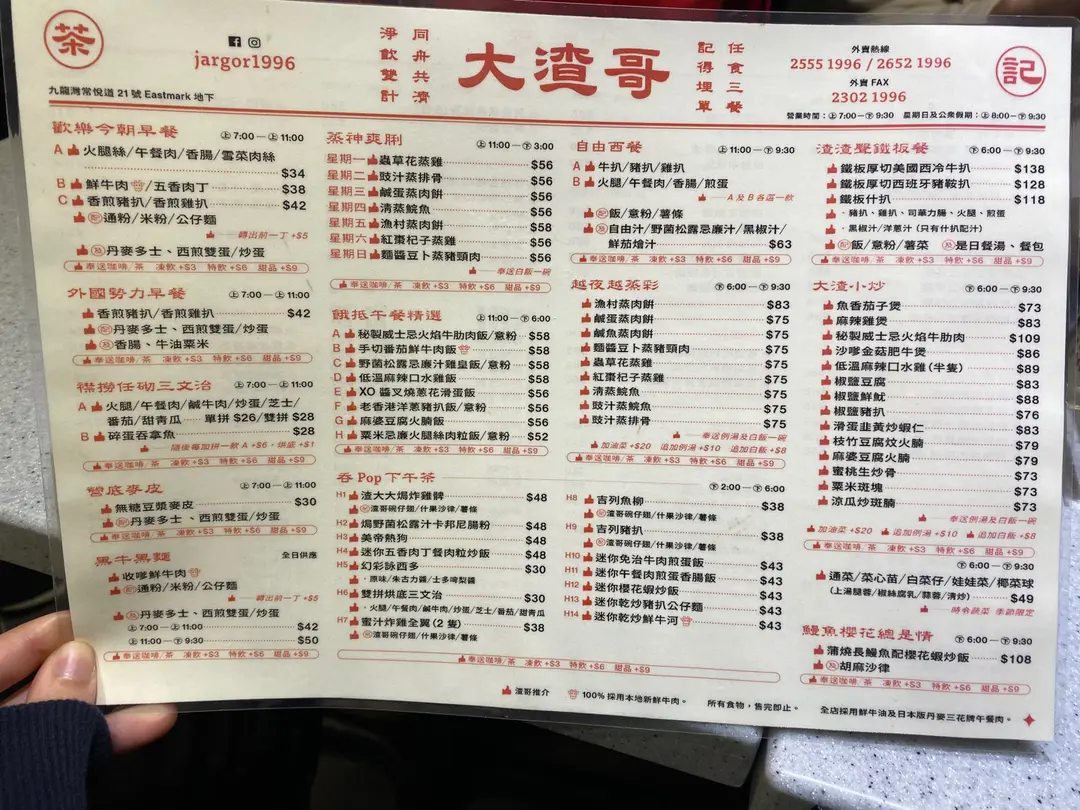 茶
jargor1996
九龍灣常悅道 21 號 Eastmark 地下
同舟共濟
淨飲雙計
大渣哥
任食三餐
記得埋單
外賣熱線
2555 1996 / 2652 1996
外賣 FAX
2302 1996
記
營業時間：上7:00—下9:30 星期日及公衆假期：上8:00—下9:30
歡樂今朝早餐 上7:00—上11:00
A 火腿絲/午餐肉/香腸/雪菜肉絲
$34
B 鮮牛肉/五香肉丁 $38
C 香煎豬扒/香煎雞扒 $42
配通粉/米粉/公仔麵
轉出前一丁 +$5
及丹麥多士、西煎雙蛋/炒蛋
奉送咖啡/茶 凍飲+$3 特飲+$6 甜品+$9
外國勢力早餐 上7:00—上11:00
香煎豬扒/香煎雞扒 $42
配丹麥多士、西煎雙蛋/炒蛋
及香腸、牛油粟米
奉送咖啡/茶 凍飲+$3 特飲+$6 甜品+$9
襟撈任砌三文治 上7:00—上11:00
A 火腿/午餐肉/鹹牛肉/炒蛋/芝士/
番茄/甜青瓜 單拼 $26/雙拼 $28
B 碎蛋吞拿魚 $28
隨後每加拼一款 A +$6，烘底 +$1
奉送咖啡/茶 凍飲+$3 特飲+$6 甜品+$9
營底麥皮 上7:00—上11:00
無糖豆漿麥皮 $30
配丹麥多士、西煎雙蛋/炒蛋
奉送咖啡/茶 凍飲+$3 特飲+$6 甜品+$9
黑牛黑麵 全日供應
收嗲鮮牛肉
配通粉/米粉/公仔麵
轉出前一丁 +$5
及丹麥多士、西煎雙蛋/炒蛋
上7:00—上11:00 $42
上11:00—下9:30 $50
奉送咖啡/茶 凍飲+$3 特飲+$6 甜品+$9
蒸神爽脷 上11:00—下3:00
星期一 蟲草花蒸雞 $56
星期二 豉汁蒸排骨 $56
星期三 鹹蛋蒸肉餅 $56
星期四 清蒸鯇魚 $56
星期五 漁村蒸肉餅 $58
星期六 紅棗杞子蒸雞 $56
星期日 麵醬豆卜蒸豬頸肉 $56
奉送白飯一碗
奉送咖啡/茶 凍飲+$3 特飲+$6 甜品+$9
餓抵午餐精選 上11:00—下6:00
A 秘製威士忌火焰牛肋肉飯/意粉 $58
B 手切番茄鮮牛肉飯 $58
C 野菌松露忌廉汁雞皇飯/意粉 $58
D 低溫麻辣口水雞飯 $58
E XO 醬叉燒蔥花滑蛋飯 $56
F 老香港洋蔥豬扒飯/意粉 $56
G 麻婆豆腐火腩飯 $56
H 粟米忌廉火腿絲肉粒飯/意粉 $52
奉送咖啡/茶 凍飲+$3 特飲+$6 甜品+$9
吞 Pop 下午茶 下2:00—下6:00
H1 渣大大焗炸雞髀 $48
配渣哥碗仔翅/什果沙律/薯條
H2 焗野菌松露汁卡邦尼腸粉 $48
H3 美帝熱狗 $48
H4 迷你五香肉丁餐肉粒炒飯 $48
H5 幻彩詠西多 $30
原味/朱古力醬/士多啤梨醬
H6 雙拼烘底三文治 $30
火腿/午餐肉/鹹牛肉/炒蛋/芝士/番茄/甜青瓜
H7 蜜汁炸雞全翼(2 隻) $38
配渣哥碗仔翅/什果沙律/薯條
H8 吉列魚柳 $38
配渣哥碗仔翅/什果沙律/薯條
H9 吉列豬扒 $38
配渣哥碗仔翅/什果沙律/薯條
H10 迷你免治牛肉煎蛋飯 $43
H11 迷你午餐肉煎蛋香腸飯 $43
H12 迷你櫻花蝦炒飯 $43
H13 迷你乾炒豬扒公仔麵 $43
H14 迷你乾炒鮮牛河 $43
奉送咖啡/茶 凍飲+$3 特飲+$6 甜品+$9
自由西餐 上11:00—下9:30
A 牛扒/豬扒/雞扒
B 火腿/午餐肉/香腸/煎蛋
A 及 B 各選一款
配飯/意粉/薯條
及自由汁/野菌松露忌廉汁/黑椒汁/
鮮茄燴汁 $63
奉送咖啡/茶 凍飲+$3 特飲+$6 甜品+$9
越夜越蒸彩 下6:00—下9:30
漁村蒸肉餅 $83
鹹蛋蒸肉餅 $75
鹹魚蒸肉餅 $75
麵醬豆卜蒸豬頸肉 $75
蟲草花蒸雞 $75
紅棗杞子蒸雞 $75
清蒸鯇魚 $75
豉汁蒸鯇魚 $75
豉汁蒸排骨 $75
奉送例湯及白飯一碗
加油菜 +$20 追加例湯 +$10 追加白飯 +$8
奉送咖啡/茶 凍飲+$3 特飲+$6 甜品+$9
渣渣聲鐵板餐 下6:00—下9:30
鐵板厚切美國西冷牛扒 $138
鐵板厚切西班牙豬鞍扒 $128
鐵板什扒 $118
豬扒、雞扒、司華力腸、火腿、煎蛋
黑椒汁/洋蔥汁（只有什扒配汁）
配飯/意粉/薯菜 及是日餐湯、餐包
奉送咖啡/茶 凍飲+$3 特飲+$6 甜品+$9
大渣小炒 下6:00—下9:30
魚香茄子煲 $73
麻辣雞煲 $83
秘製威士忌火焰牛肋肉 $109
沙嗲金菇肥牛煲 $86
低溫麻辣口水雞(半隻) $89
椒鹽豆腐 $83
椒鹽鮮魷 $88
椒鹽豬扒 $76
滑蛋韭黃炒蝦仁 $83
枝竹豆腐炆火腩 $79
麻婆豆腐火腩 $79
蜜桃生炒骨 $73
粟米斑塊 $73
涼瓜炒斑腩 $73
奉送例湯及白飯一碗
加油菜 +$20 追加例湯 +$10 追加白飯 +$8
奉送咖啡/茶 凍飲+$3 特飲+$6 甜品+$9
下6:00—下9:30
通菜/菜心苗/白菜仔/娃娃菜/椰菜球
(上湯腿蓉/椒絲腐乳/蒜蓉/清炒) $49
時令蔬菜 季節限定
鰻魚櫻花總是情 下6:00—下9:30
蒲燒長鰻魚配櫻花蝦炒飯 $108
及胡麻沙律
奉送咖啡/茶 凍飲+$3 特飲+$6 甜品+$9
渣哥推介 100% 採用本地新鮮牛肉。 所有食物，售完即止。 全店採用鮮牛油及日本版丹麥三花牌午餐肉。